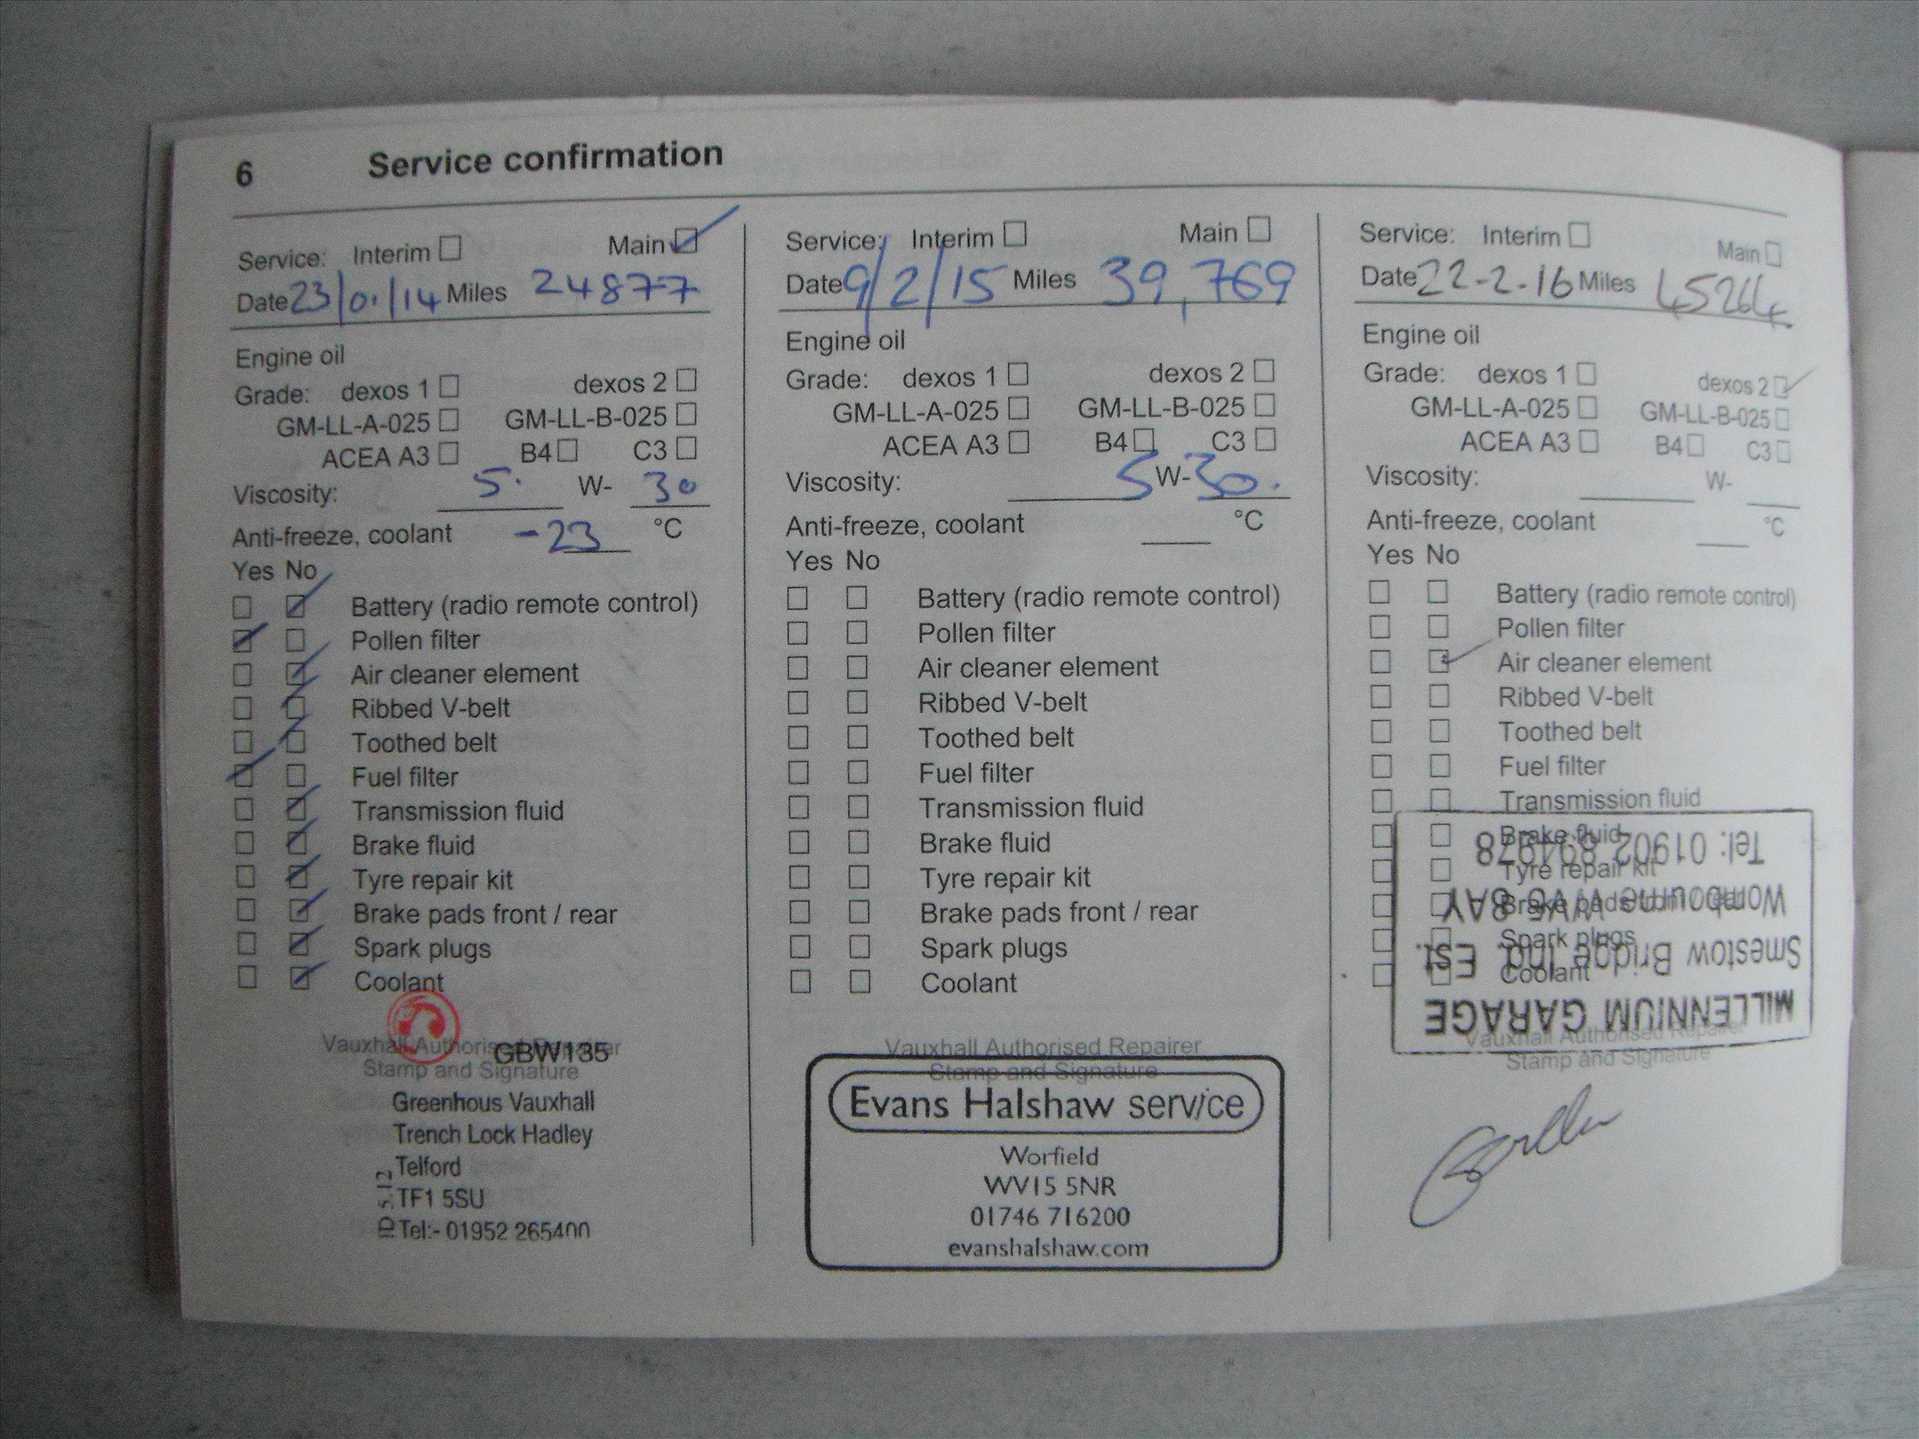 6 Service confirmation
Service: Interim Main
Date 23/01/14 Miles 24877
Engine oil
Grade: dexos 1 dexos 2
GM-LL-A-025 GM-LL-B-025
ACEA A3 B4 C3
Viscosity: 5. W- 30
Anti-freeze, coolant -23 °C
Yes No
Battery (radio remote control)
Pollen filter
Air cleaner element
Ribbed V-belt
Toothed belt
Fuel filter
Transmission fluid
Brake fluid
Tyre repair kit
Brake pads front / rear
Spark plugs
Coolant
Vauxhall Authorised Repairer
GBW135
Stamp and Signature
Greenhous Vauxhall
Trench Lock Hadley
Telford
TF1 5SU
Tel:- 01952 265400
Service: Interim Main
Date 9/2/15 Miles 39,769
Engine oil
Grade: dexos 1 dexos 2
GM-LL-A-025 GM-LL-B-025
ACEA A3 B4 C3
Viscosity: 5 W- 30.
Anti-freeze, coolant °C
Yes No
Battery (radio remote control)
Pollen filter
Air cleaner element
Ribbed V-belt
Toothed belt
Fuel filter
Transmission fluid
Brake fluid
Tyre repair kit
Brake pads front / rear
Spark plugs
Coolant
Vauxhall Authorised Repairer
Stamp and Signature
Evans Halshaw service
Worfield
WV15 5NR
01746 716200
evanshalshaw.com
Service: Interim Main
Date 22-2-16 Miles 45264
Engine oil
Grade: dexos 1 dexos 2
GM-LL-A-025 GM-LL-B-025
ACEA A3 B4 C3
Viscosity: W-
Anti-freeze, coolant °C
Yes No
Battery (radio remote control)
Pollen filter
Air cleaner element
Ribbed V-belt
Toothed belt
Fuel filter
Transmission fluid
Brake fluid
Tyre repair kit
Brake pads front / rear
Spark plugs
Coolant
Vauxhall Authorised Repairer
Stamp and Signature
MILLENNIUM GARAGE
Smestow Bridge Ind. Est.
Wombourne WV5 8AY
Tel: 01902 894978